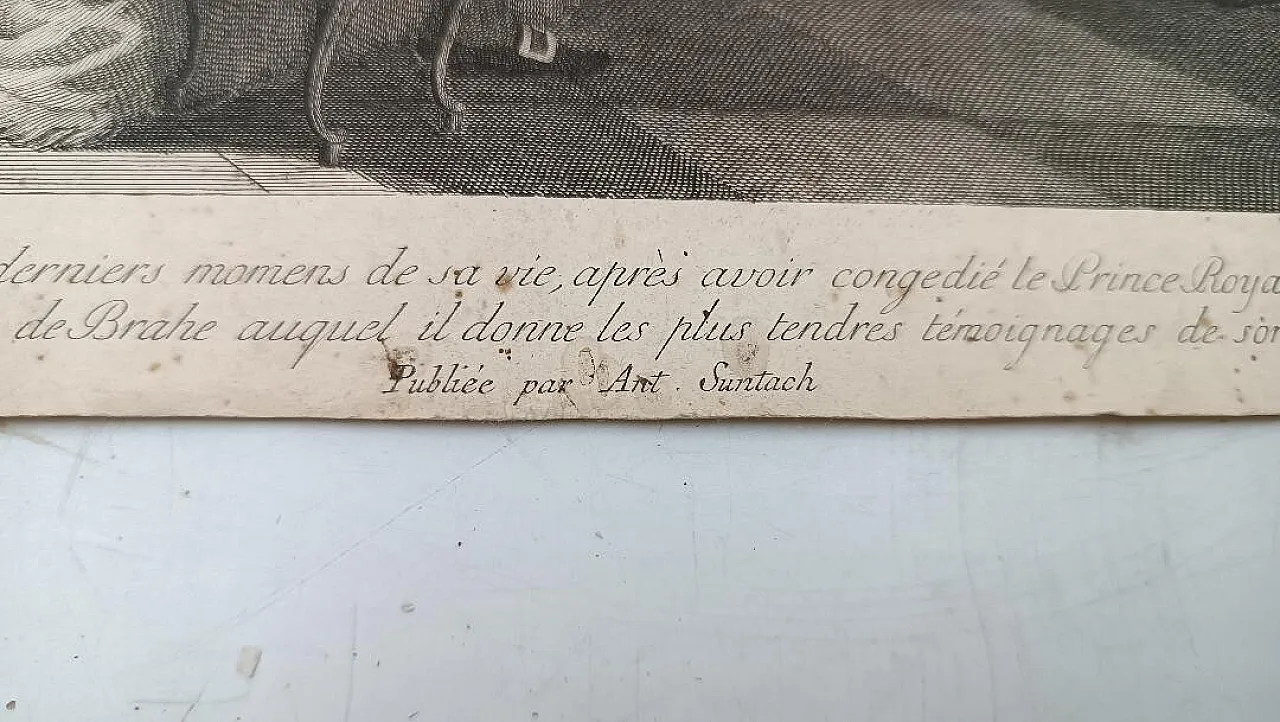 derniers momens de sa vie, après avoir congedié le Prince Roya
de Brahe auquel il donne les plus tendres témoignages de son
Publiée par Ant. Suntach